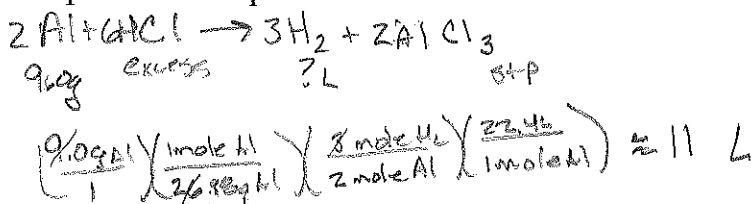 2Al+6HCl → 3H₂ + 2AlCl₃
9.0g excess ? L stp
(9.0g Al / 1)(1mole Al / 26.98g Al)(3 mole H₂ / 2 mole Al)(22.4L / 1mole) ≈ 11 L